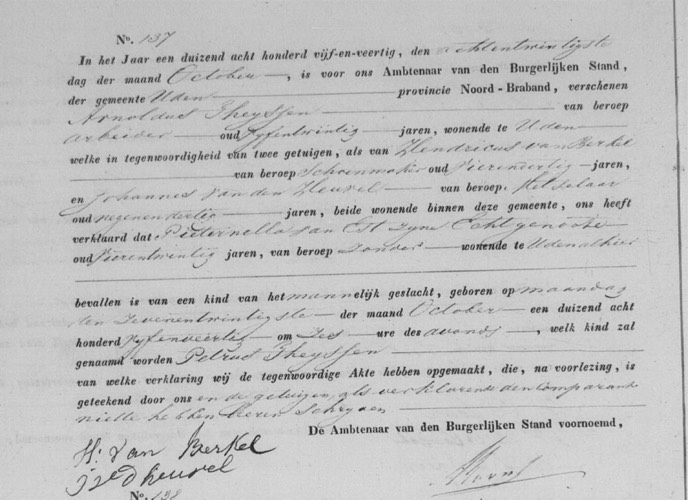 No. 137
In het Jaar een duizend acht honderd vijf-en-veertig, den achtentwintigste
dag der maand October, is voor ons Ambtenaar van den Burgerlijken Stand,
der gemeente Uden provincie Noord-Braband, verschenen
Arnoldus Theyssen van beroep
arbeider oud Vyfentwintig jaren, wonende te Uden
welke in tegenwoordigheid van twee getuigen, als van Hendricus van Berkel
van beroep Schoenmaker oud Vierenveertig jaren,
en Johannes van den Heuvel van beroep
oud negenendertig jaren, beide wonende binnen deze gemeente, ons heeft
verklaard dat Pieternella van Zyne Echtgenoote
oud Vierentwintig jaren, van beroep Zonder wonende te Uden alhier
bevallen is van een kind van het mannelijk geslacht, geboren op maandag
den Zevenentwintigste der maand October een duizend acht
honderd Vyfenveertig om Zes ure des avonds, welk kind zal
genaamd worden Petrus Theyssen
van welke verklaring wij de tegenwoordige Akte hebben opgemaakt, die, na voorlezing, is
geteekend door ons en de getuigen, als verklarende den Comparant
niet te hebben leeren Schryven
De Ambtenaar van den Burgerlijken Stand voornoemd,
H: van Berkel
heuvel
No. 138